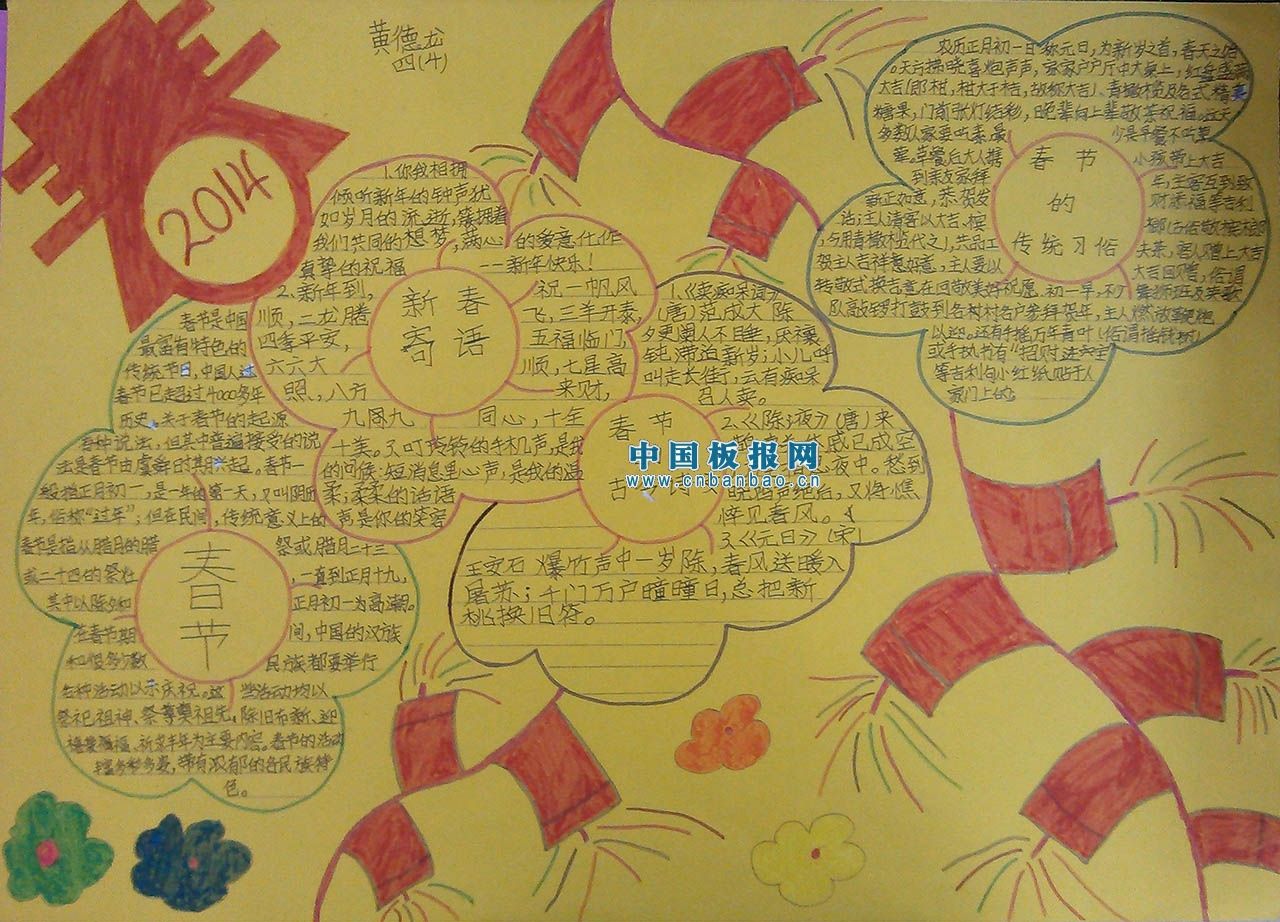 黄德龙
四(4)
2014
1.你我相拥
倾听新年的钟声犹
如岁月的流逝,簇拥着
我们共同的想梦,满心的爱意化作
真挚的祝福 --新年快乐!
2.新年到, 祝一帆风
顺,二龙腾 飞,三羊开泰,
四季平安, 五福临门,
六六大 顺,七星高
照,八方 来财,
九九 同心,十全
十美。
的问候:短消息里心声,是我的温
柔;柔柔的话语
声是你的笑容
新春
寄语
春节是中国
最富有特色的
传统节日,中国人过
春节已超过4000多年
历史,关于春节的起源
有种说法,但其中普遍接受的说
法是春节由虞舜时期兴起。春节一
般指正月初一,是一年的第一天,又叫阴历
年,俗称“过年”;但在民间,传统意义上的
春节是指从腊月的腊 祭或腊月二十三
或二十四的祭灶 ,一直到正月十九,
其中以除夕和 正月初一为高潮。
在春节期 间,中国的汉族
和很多少数 民族都要举行
各种活动以示庆祝。这 些活动均以
祭祀祖神、祭奠祖先、除旧布新、迎
禧接福、祈求丰年为主要内容。春节的活动
丰富多彩,带有浓郁的各民族特
色。
春
节
1.《卖痴呆词》
(唐)范成大 除
夕更阑人不睡,厌禳
钝滞迫新岁;小儿呼
叫走长街,云有痴呆
召人卖。
2.《除夜》(唐)来
感已成空
夜中。愁到
晓鸡声绝后,又将憔
悴见春风。
3.《元日》(宋)
王安石 爆竹声中一岁除,春风送暖入
屠苏;千门万户曈曈日,总把新
桃换旧符。
春节
古
农历正月初一日称元日,为新岁之首,春天之始
。天方拂晓喜炮声声,家家户户厅中大桌上,红盘盛满
大吉(即柑,柑大于桔,故称大吉)、青橄榄及各式精美
糖果,门前张灯结彩,晚辈向上辈敬茶祝福。这天
多数人家要听素,最 少是早餐不听荤
荤。早餐后大人携 小孩带上大吉
到亲友家拜 年,主客互到致
新正如意,恭贺发 财添福等吉利
话;主人请客以大吉、槟
,与用青橄榄代之),共品工 夫茶,客人赠上大吉
贺主人吉祥如意,主人要以 大吉回赠,俗谓
春节
的
传统习俗
队高敲锣打鼓到各村村各户参拜贺年,主人燃放鞭炮
以迎。还有手摇万年青叶
或手执书有“招财进宝
等吉利句小红纸贴于人
家门上的。
中国板报网
www.cnbanbao.cn